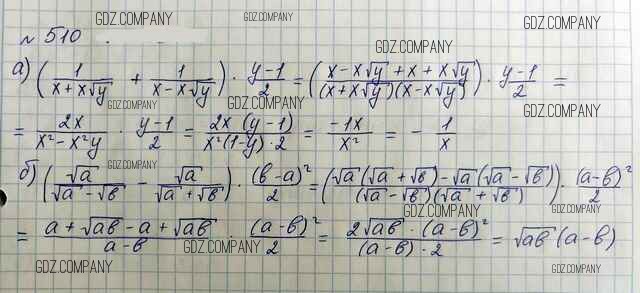 GDZ.COMPANY GDZ.COMPANY GDZ.COMPANY
№ 510 .
GDZ.COMPANY
а) (1/(x + x√y) + 1/(x - x√y)) · (y-1)/2 = (x - x√y + x + x√y)/((x + x√y)(x - x√y)) · (y-1)/2 =
GDZ.COMPANY GDZ.COMPANY GDZ.COMPANY
= 2x/(x² - x²y) · (y-1)/2 = 2x (y-1)/(x²(1-y)·2) = -1x/x² = - 1/x
GDZ.COMPANY
б) (√a/(√a - √b) - √a/(√a + √b)) · (b-a)²/2 = (√a(√a + √b) - √a(√a - √b))/((√a - √b)(√a + √b)) · (a-b)²/2
GDZ.COMPANY
= (a + √ab - a + √ab)/(a-b) · (a-b)²/2 = 2√ab · (a-b)²/((a-b)·2) = √ab (a-b)
GDZ.COMPANY
GDZ.COMPANY GDZ.COMPANY